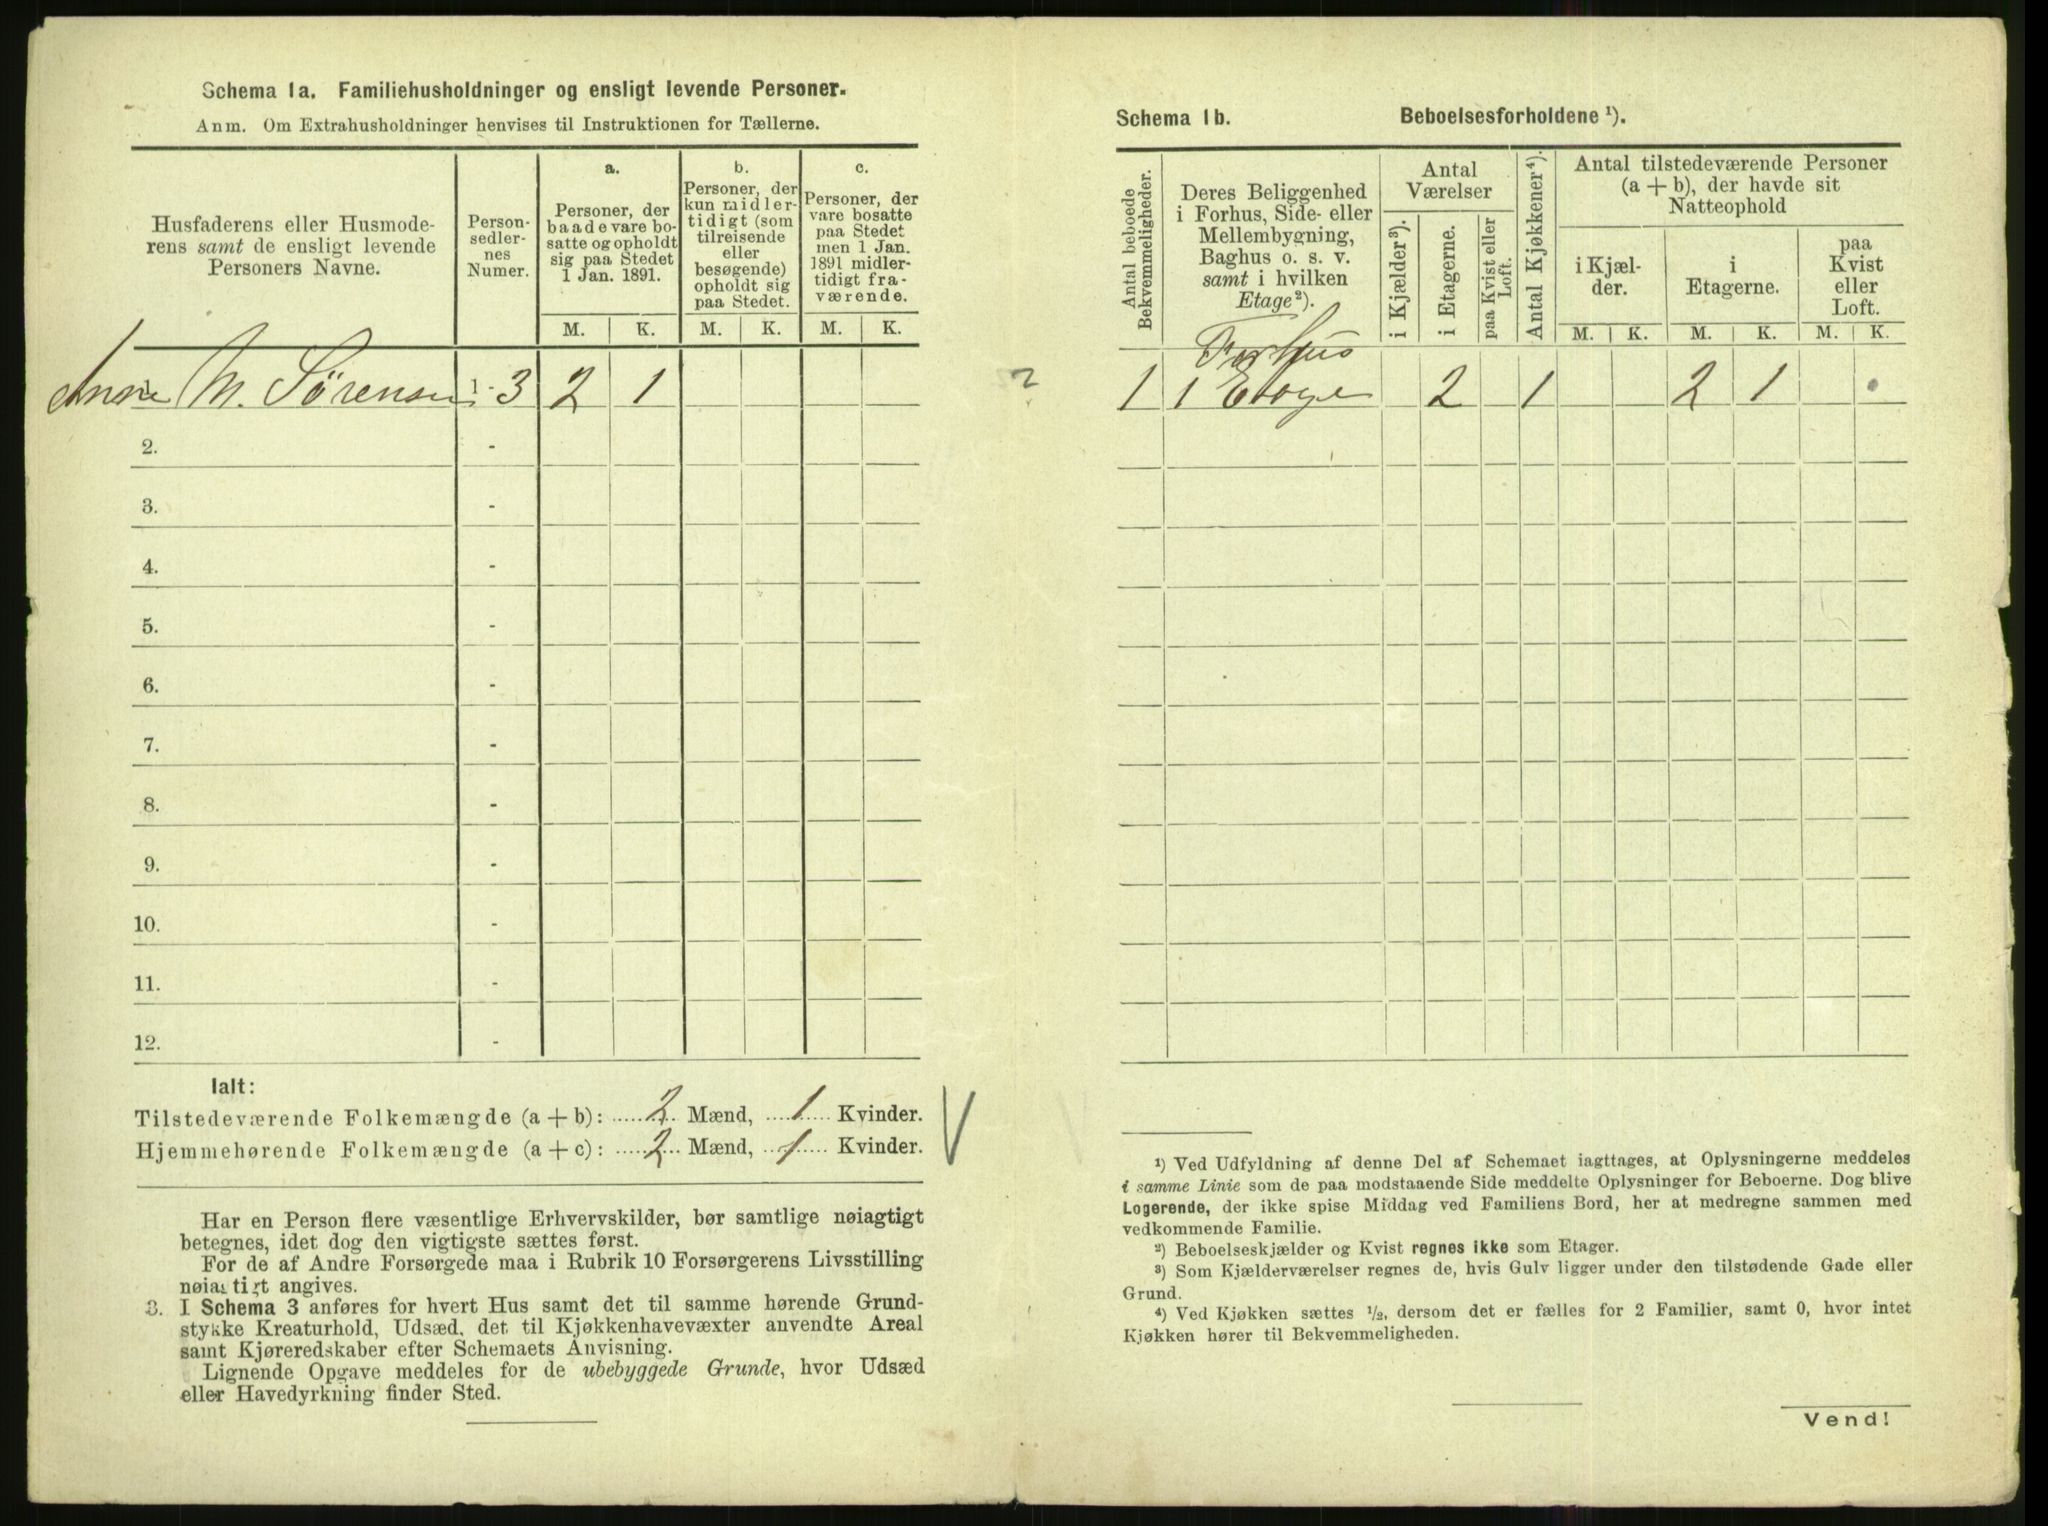 Schema 1a. Familiehusholdninger og ensligt levende Personer.
Anm. Om Extrahusholdninger henvises til Instruktionen for Tællerne.
Husfaderens eller Husmode-
rens samt de ensligt levende
Personers Navne.
Person-
sedler-
nes
Numer.
a.
Personer, der
baade vare bo-
satte og opholdt
sig paa Stedet
1 Jan. 1891.
b.
Personer, der
kun midler-
tidigt (som
tilreisende
eller
besøgende)
opholdt sig
paa Stedet.
c.
Personer, der
vare bosatte
paa Stedet
men 1 Jan.
1891 midler-
tidigt fra-
værende.
M. K. M. K. M. K.
M. Sörensen 1-3 2 1
2. -
3. -
4. -
5. -
6. -
7. -
8. -
9. -
10. -
11. -
12. -
Ialt:
Tilstedeværende Folkemængde (a + b): 2 Mænd, 1 Kvinder.
Hjemmehørende Folkemængde (a + c): 2 Mænd, 1 Kvinder.
Har en Person flere væsentlige Erhvervskilder, bør samtlige nøiagtigt
betegnes, idet dog den vigtigste sættes først.
For de af Andre Forsørgede maa i Rubrik 10 Forsørgerens Livsstilling
nøiagtigt angives.
3. I Schema 3 anføres for hvert Hus samt det til samme hørende Grund-
stykke Kreaturhold, Udsæd, det til Kjøkkenhavevæxter anvendte Areal
samt Kjøreredskaber efter Schemaets Anvisning.
Lignende Opgave meddeles for de ubebyggede Grunde, hvor Udsæd
eller Havedyrkning finder Sted.
Schema 1b. Beboelsesforholdene ¹).
Antal beboede
Bekvemmeligheder.
Deres Beliggenhed
i Forhus, Side- eller
Mellembygning,
Baghus o. s. v.
samt i hvilken
Etage ²).
Antal
Værelser
i Kjælder ³).
i Etagerne.
paa Kvist eller
Loft.
Antal Kjøkkener ⁴).
Antal tilstedeværende Personer
(a + b), der havde sit
Natteophold
i Kjæl-
der.
i
Etagerne.
paa
Kvist
eller
Loft.
M. K. M. K. M. K.
?
Forhus
1 1 Etage 2 1 2 1
¹) Ved Udfyldning af denne Del af Schemaet iagttages, at Oplysningerne meddeles
i samme Linie som de paa modstaaende Side meddelte Oplysninger for Beboerne. Dog blive
Logerende, der ikke spise Middag ved Familiens Bord, her at medregne sammen med
vedkommende Familie.
²) Beboelseskjælder og Kvist regnes ikke som Etager.
³) Som Kjælderværelser regnes de, hvis Gulv ligger under den tilstødende Gade eller
Grund.
⁴) Ved Kjøkken sættes ½, dersom det er fælles for 2 Familier, samt 0, hvor intet
Kjøkken hører til Bekvemmeligheden.
Vend!